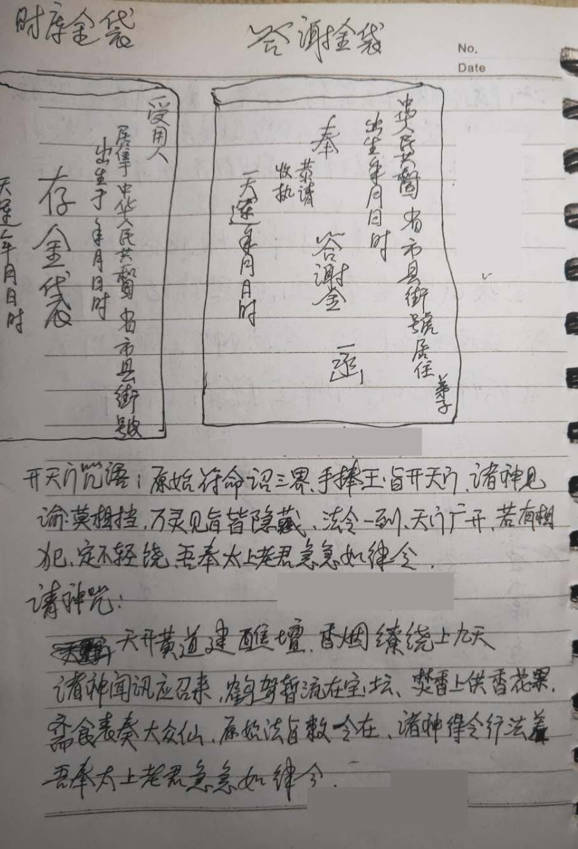 财库金袋
答谢金袋
No.
Date
受用人
居住于中华人民共和国 省市县街號
出生于 年月日时
存金袋
天运 年月日时
中华人民共和国 省市县街號居住 弟子
出生年月日时
奉
恭请
收执
答谢金 一函
天运年月日时
开天门咒语：原始符命诏三界、手捧玉旨开天门、诸神见
谕莫相挡，万灵见旨皆隐藏、法令一到、天门广开、若有相
犯、定不轻绕、吾奉太上老君急急如律令.
请神咒：
天开黄道建醮坛、香烟缭绕上九天
诸神闻讯应召来、鹤驾暂流在宝坛、焚香上供香花果、
斋食表奏大众仙、原始法旨敕令在、诸神得令行法
吾奉太上老君急急如律令.